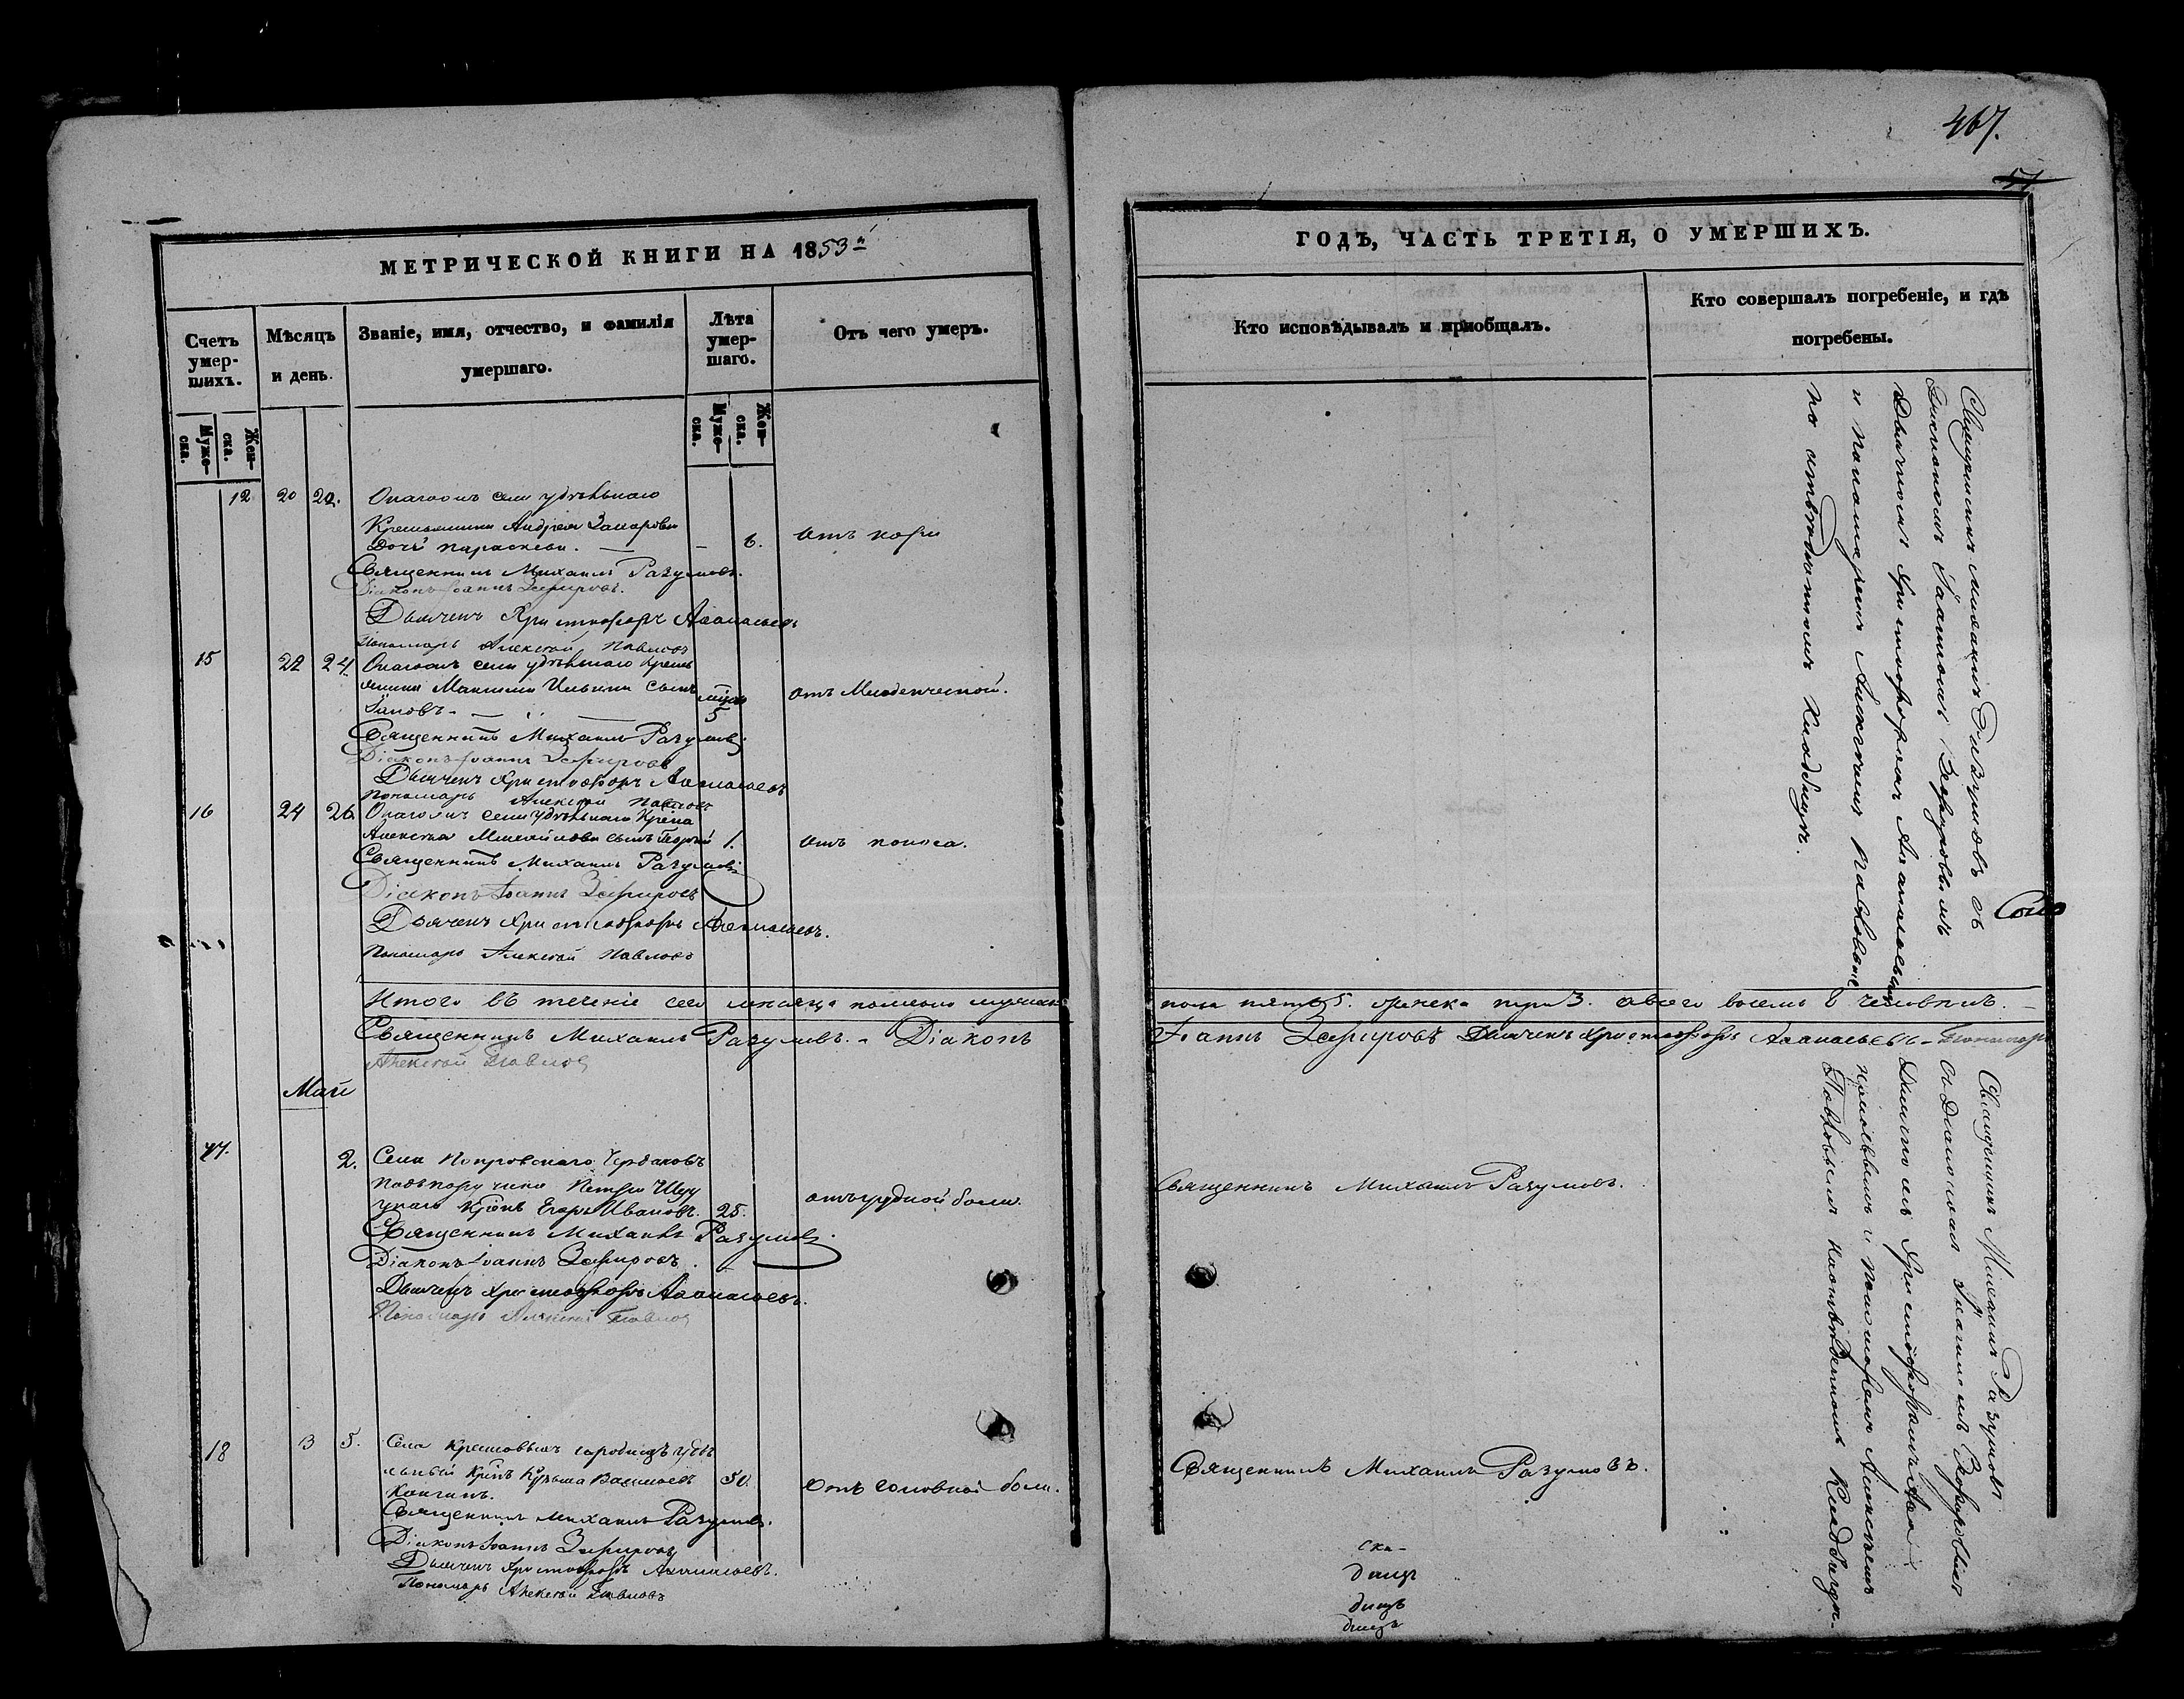 467.
51
МЕТРИЧЕСКОЙ КНИГИ НА 1853й
Счетъ умер-шихъ.
Муже-ска.
Жен-ска.
Мѣсяцъ и день.
Званіе, имя, отчество, и фамилія умершаго.
Лѣта умер-шаго.
Муже-ска.
Жен-ска.
Отъ чего умеръ.
12 20 22.
села удѣльнаго
Крестьянина Андрея Захарова
дочь Параскева. — – 6. отъ кори
Священникъ Михаилъ Разумовъ.
Діаконъ Іоаннъ Зефировъ.
Дьячекъ Христофоръ Аѳанасьевъ
Пономарь Алексѣй Павловъ
15 22 24
села удѣльнаго крестья
янина Максима Ильина сынъ
Іаковъ - 5 отъ Младенческой.
Священникъ Михаилъ Разумовъ
Діаконъ Іоаннъ Зефировъ
Дьячекъ Христофоръ Аѳанасьевъ
Пономарь Алексѣй Павловъ
16 24 26
села удѣльнаго Крѣна
Алексѣя Михайлова сынъ 1. отъ поноса.
Священникъ Михаилъ Разумовъ
Діаконъ Іоаннъ Зефировъ
Дьячекъ Христофоръ Аѳанасьевъ.
Пономарь Алексѣй Павловъ
Итого въ теченіе сего мѣсяца померло мужеска
Священникъ Михаилъ Разумовъ. - Діаконъ
Алексѣй Павловъ
Май
17. 2. Села Покровскаго Чердаковъ
Подъпоручика Петра
Крѣнъ Егоръ Ивановъ. 25. отъ грудной боли.
Священникъ Михаилъ Разумовъ.
Діаконъ Іоаннъ Зефировъ.
Дьячекъ Христофоръ Аѳанасьевъ.
Пономарь Алексѣй Павловъ
18 3 5. Села Крестовыхъ городищъ удѣ
льный Крѣнъ Кузьма Васильевъ 50. отъ головной боли.
Священникъ Михаилъ Разумовъ.
Діаконъ Іоаннъ Зефировъ
Дьячекъ Христофоръ Аѳанасьевъ.
Пономарь Алексѣй Павловъ
ГОДЪ, ЧАСТЬ ТРЕТІЯ, О УМЕРШИХЪ.
Кто исповѣдывалъ и пріобщалъ.
Кто совершалъ погребеніе, и гдѣ погребены.
Священникъ Михаилъ Разумовъ съ
Діакономъ Іоанномъ Зефировымъ
Дьячкомъ Христофоромъ Аѳанасьевымъ
и Пономаремъ Алексѣемъ Павловымъ
на отведенномъ Кладбищѣ.
пола пять 5. женска три 3. обоего восемь 8 человѣкъ.
Іоаннъ Зефировъ Дьячекъ Христофоръ Аѳанасьевъ - Пономарь
Священникъ Михаилъ Разумовъ.
Священникъ Михаилъ Разумовъ.
Священникъ Михаилъ Разумовъ
съ Діакономъ Іоанномъ Зефировымъ
Дьячкомъ Христофоромъ
и Пономаремъ Алексѣемъ
Павловымъ на отведенномъ Кладбищѣ.